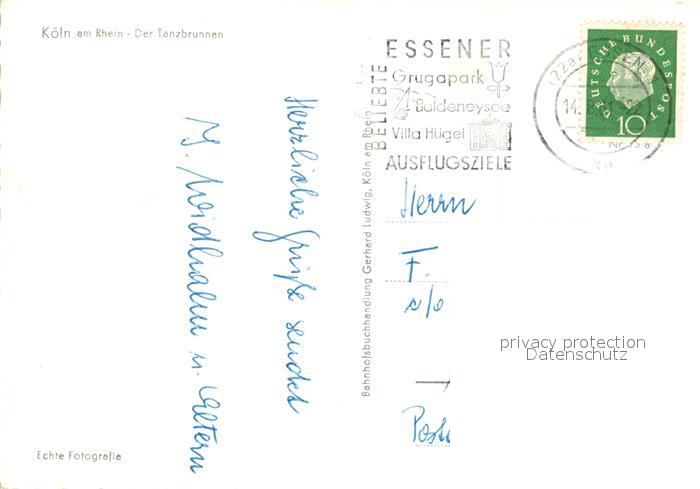 Köln am Rhein - Der Tanzbrunnen
BELIEBTE
ESSENER
Grugapark
Baldeneysee
Villa Hügel
AUSFLUGSZIELE
(22a) ESSEN
14.8.61
DEUTSCHE BUNDESPOST
10
Herzliche Grüße sendet
u. Eltern
Bahnhofsbuchhandlung Gerhard Ludwig, Köln am Rhein
Herrn
F.
c/o
Post
privacy protection
Datenschutz
Echte Fotografie